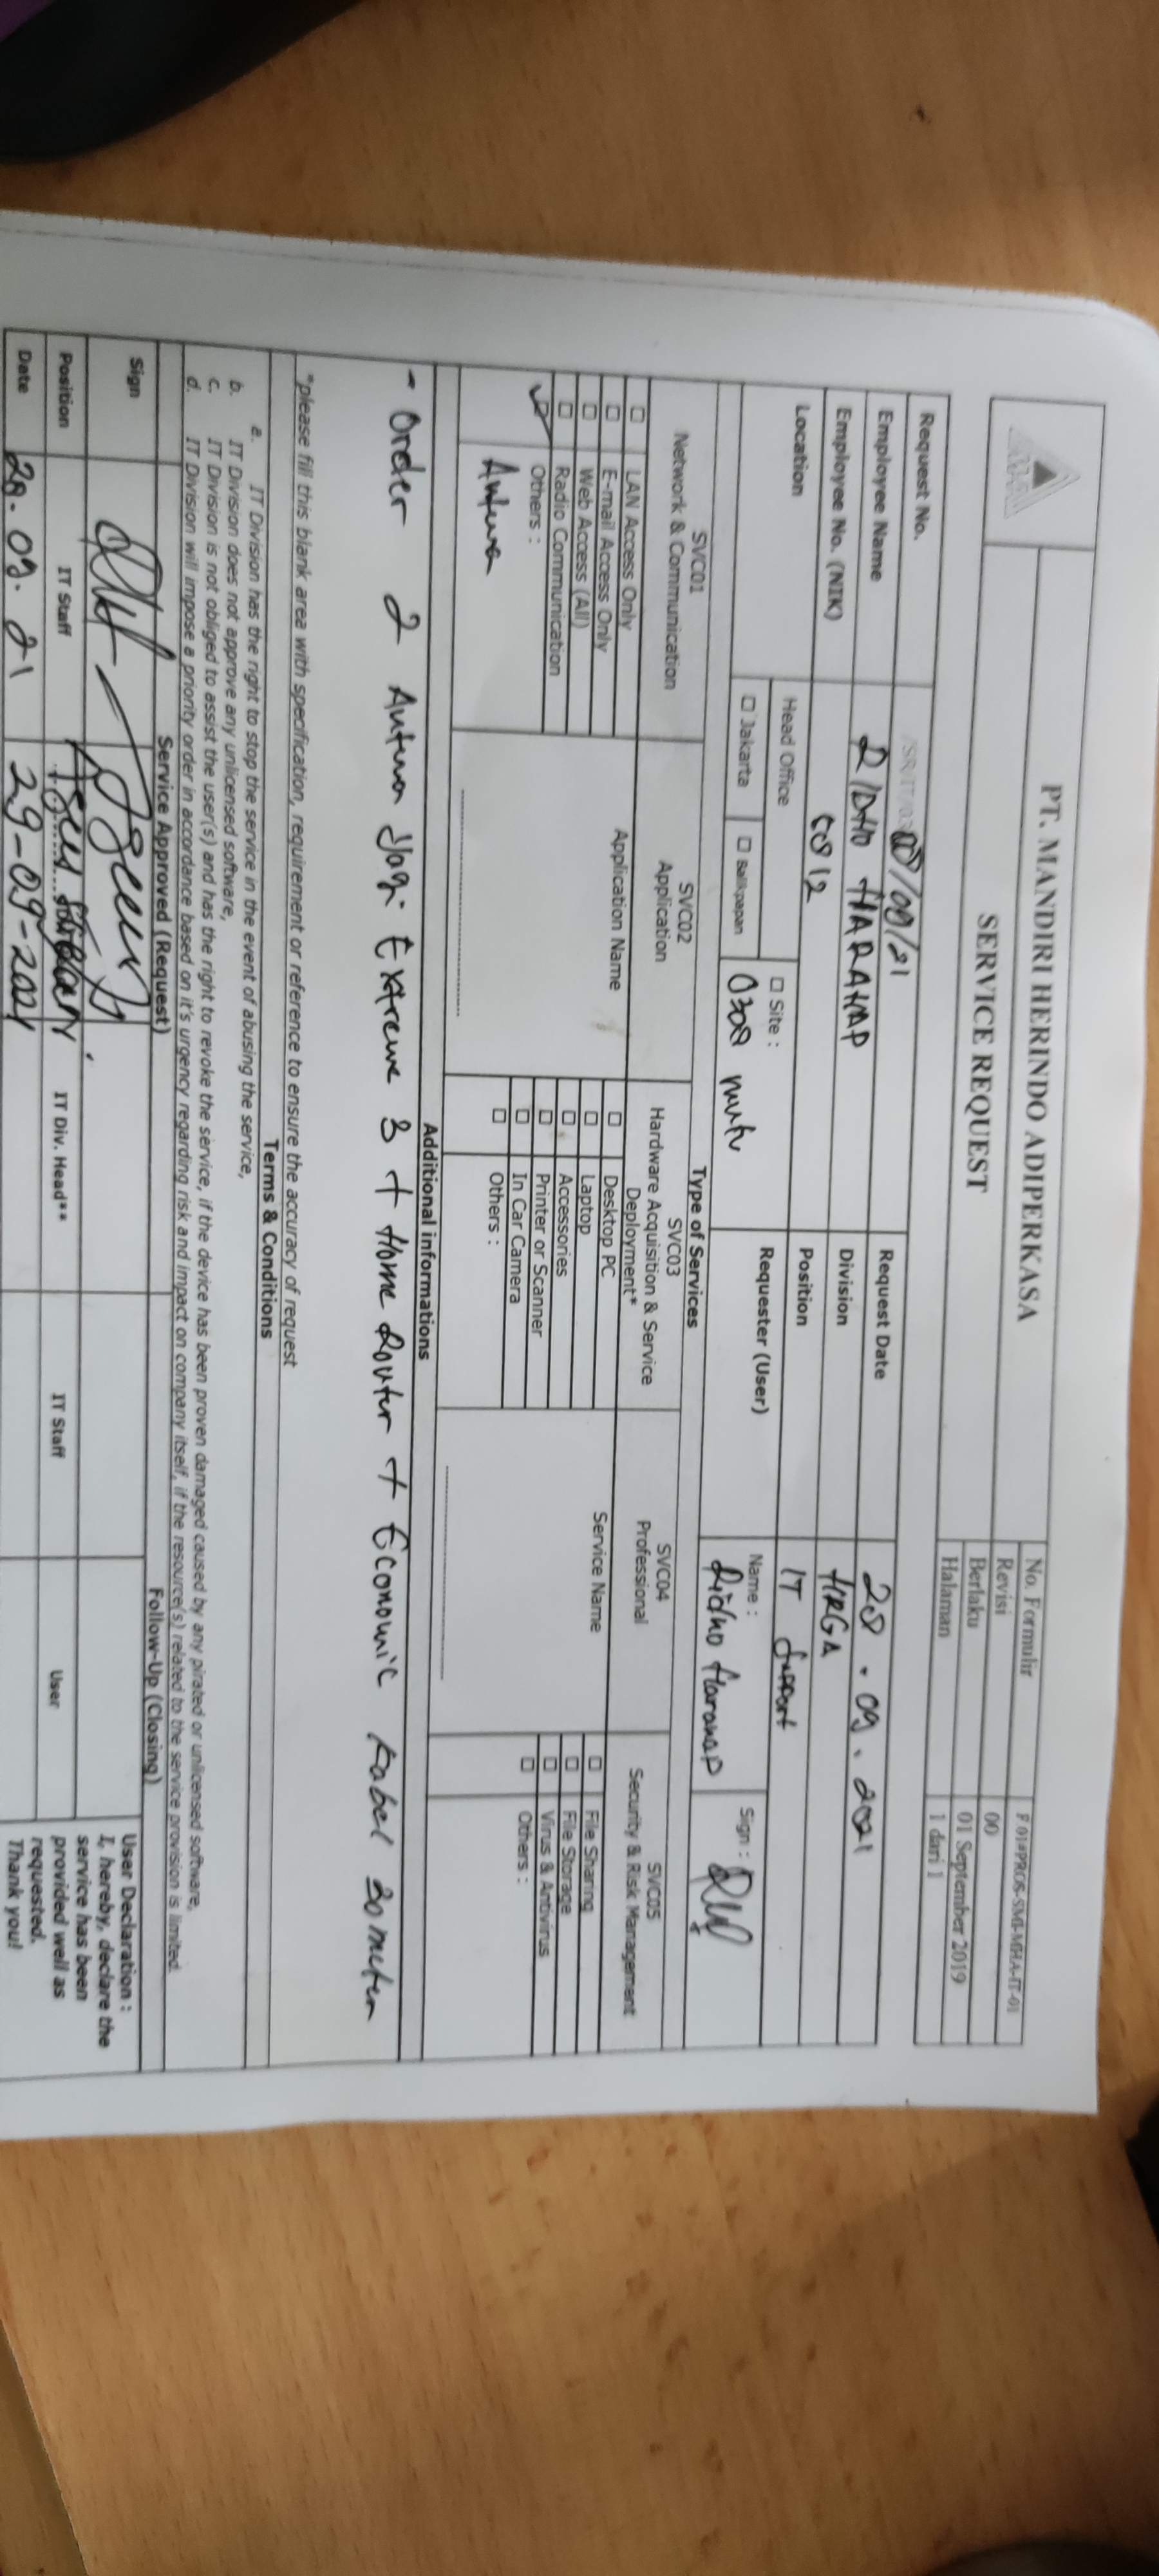 PT. MANDIRI HERINDO ADIPERKASA
SERVICE REQUEST
No. Formulir F.014/PROS-SMI-MHA-IT-01
Revisi 00
Berlaku 01 September 2019
Halaman 1 dari 1
Request No. /SR/IT/03 /09/21 Request Date 28 . 09 . 2021
Employee Name RIDHO HARAHAP Division HRGA
Employee No. (NIK) Position IT Support
Location Head Office □ Site : Requester (User) Name : Sign :
□ Jakarta □ Balikpapan Ridho Harahap
Type of Services
SVC01 SVC02 SVC03 SVC04 SVC05
Network & Communication Application Hardware Acquisition & Service Deployment* Professional Security & Risk Management
□ LAN Access Only Application Name □ Desktop PC Service Name □ File Sharing
□ E-mail Access Only □ Laptop □ File Storage
□ Web Access (All) □ Accessories □ Virus & Antivirus
□ Radio Communication □ Printer or Scanner □ Others :
□ Others : □ In Car Camera
Antena □ Others :
Additional informations
- Order 2 Antena Yagi Extreme 3 + Home Router + Economic Kabel 30 meter
*please fill this blank area with specification, requirement or reference to ensure the accuracy of request
Terms & Conditions
a. IT Division has the right to stop the service in the event of abusing the service,
b. IT Division does not approve any unlicensed software,
c. IT Division is not obliged to assist the user(s) and has the right to revoke the service, if the device has been proven damaged caused by any pirated or unlicensed software,
d. IT Division will impose a priority order in accordance based on it's urgency regarding risk and impact on company itself, if the resource(s) related to the service provision is limited.
Service Approved (Request) Follow-Up (Closing)
Sign
User Declaration :
I, hereby, declare the
service has been
provided well as
requested.
Thank you!
Position IT Staff IT Div. Head** IT Staff User
Date 28. 09. 21 29-09-2021